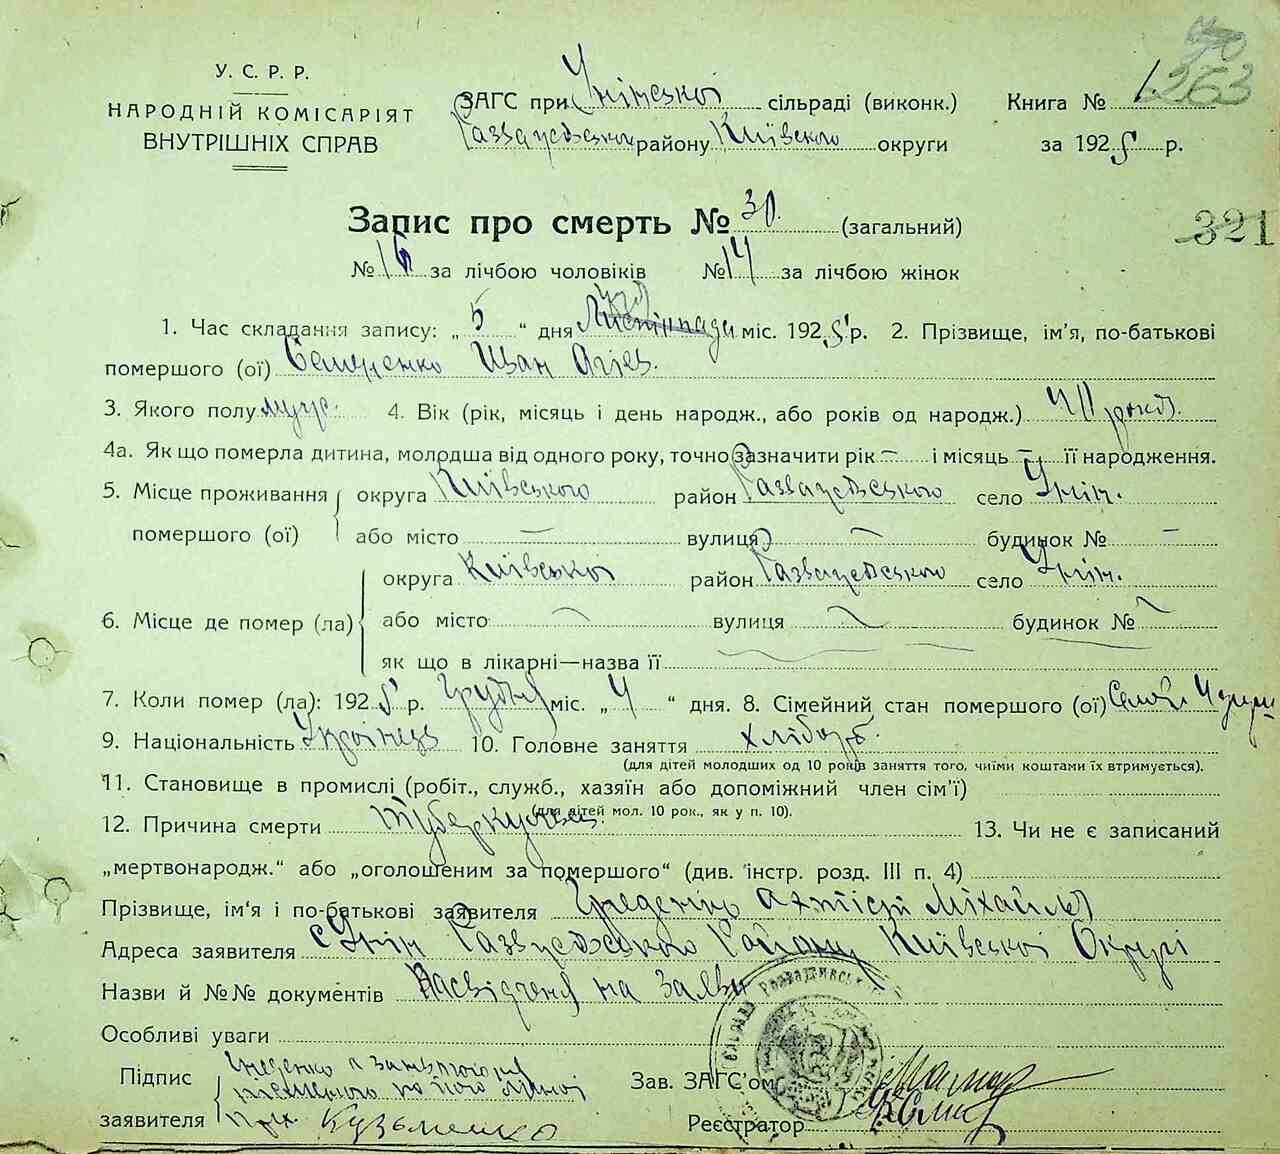 У. С. Р. Р.
НАРОДНІЙ КОМІСАРІЯТ
ВНУТРІШНІХ СПРАВ
ЗАГС при Унінської сільраді (виконк.)
району Київского округи
Книга № 1. 263
за 1925 р.
321
Запис про смерть № 30. (загальний)
№ 16 за лічбою чоловіків № 14 за лічбою жінок
1. Час складання запису: „ 5 “ дня міс. 1925 р. 2. Прізвище, ім'я, по-батькові
помершого (ої) Іван
3. Якого полу 4. Вік (рік, місяць і день народж., або років од народж.)
4а. Як що померла дитина, молодша від одного року, точно зазначити рік — і місяць — її народження.
5. Місце проживання помершого (ої) округа Київського район село Унін.
або місто — вулиця — будинок № —
6. Місце де помер (ла) округа Київської район село Унін.
або місто вулиця будинок №
як що в лікарні—назва її
7. Коли помер (ла): 1925 р. Грудня міс. „ 4 “ дня. 8. Сімейний стан помершого (ої)
9. Національність Українець 10. Головне заняття хлібороб.
(для дітей молодших од 10 років заняття того, чиїми коштами їх втримується).
11. Становище в промислі (робіт., служб., хазяїн або допоміжний член сім'ї)
(для дітей мол. 10 рок., як у п. 10).
12. Причина смерти Туберкульоз. 13. Чи не є записаний
„мертвонародж.“ або „оголошеним за помершого“ (див. інстр. розд. III п. 4)
Прізвище, ім'я і по-батькові заявителя
Адреса заявителя с Унін Району Київської Округи
Назви й №№ документів на заяви
Особливі уваги
Підпис заявителя
Кузьменко
Зав. ЗАГС'ом
Реєстратор